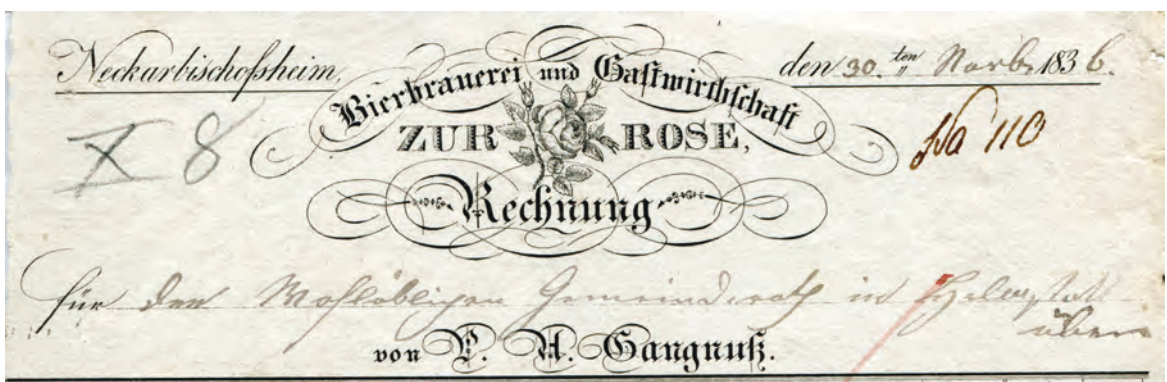 Neckarbischofsheim, den 30. ten Novb. 1836.
Bierbrauerei und Gastwirthschaft
X 8 ZUR ROSE, No 110
Rechnung
für den Wohllöblichen Gemeinderath in
über
von P. A. Gangnuß.